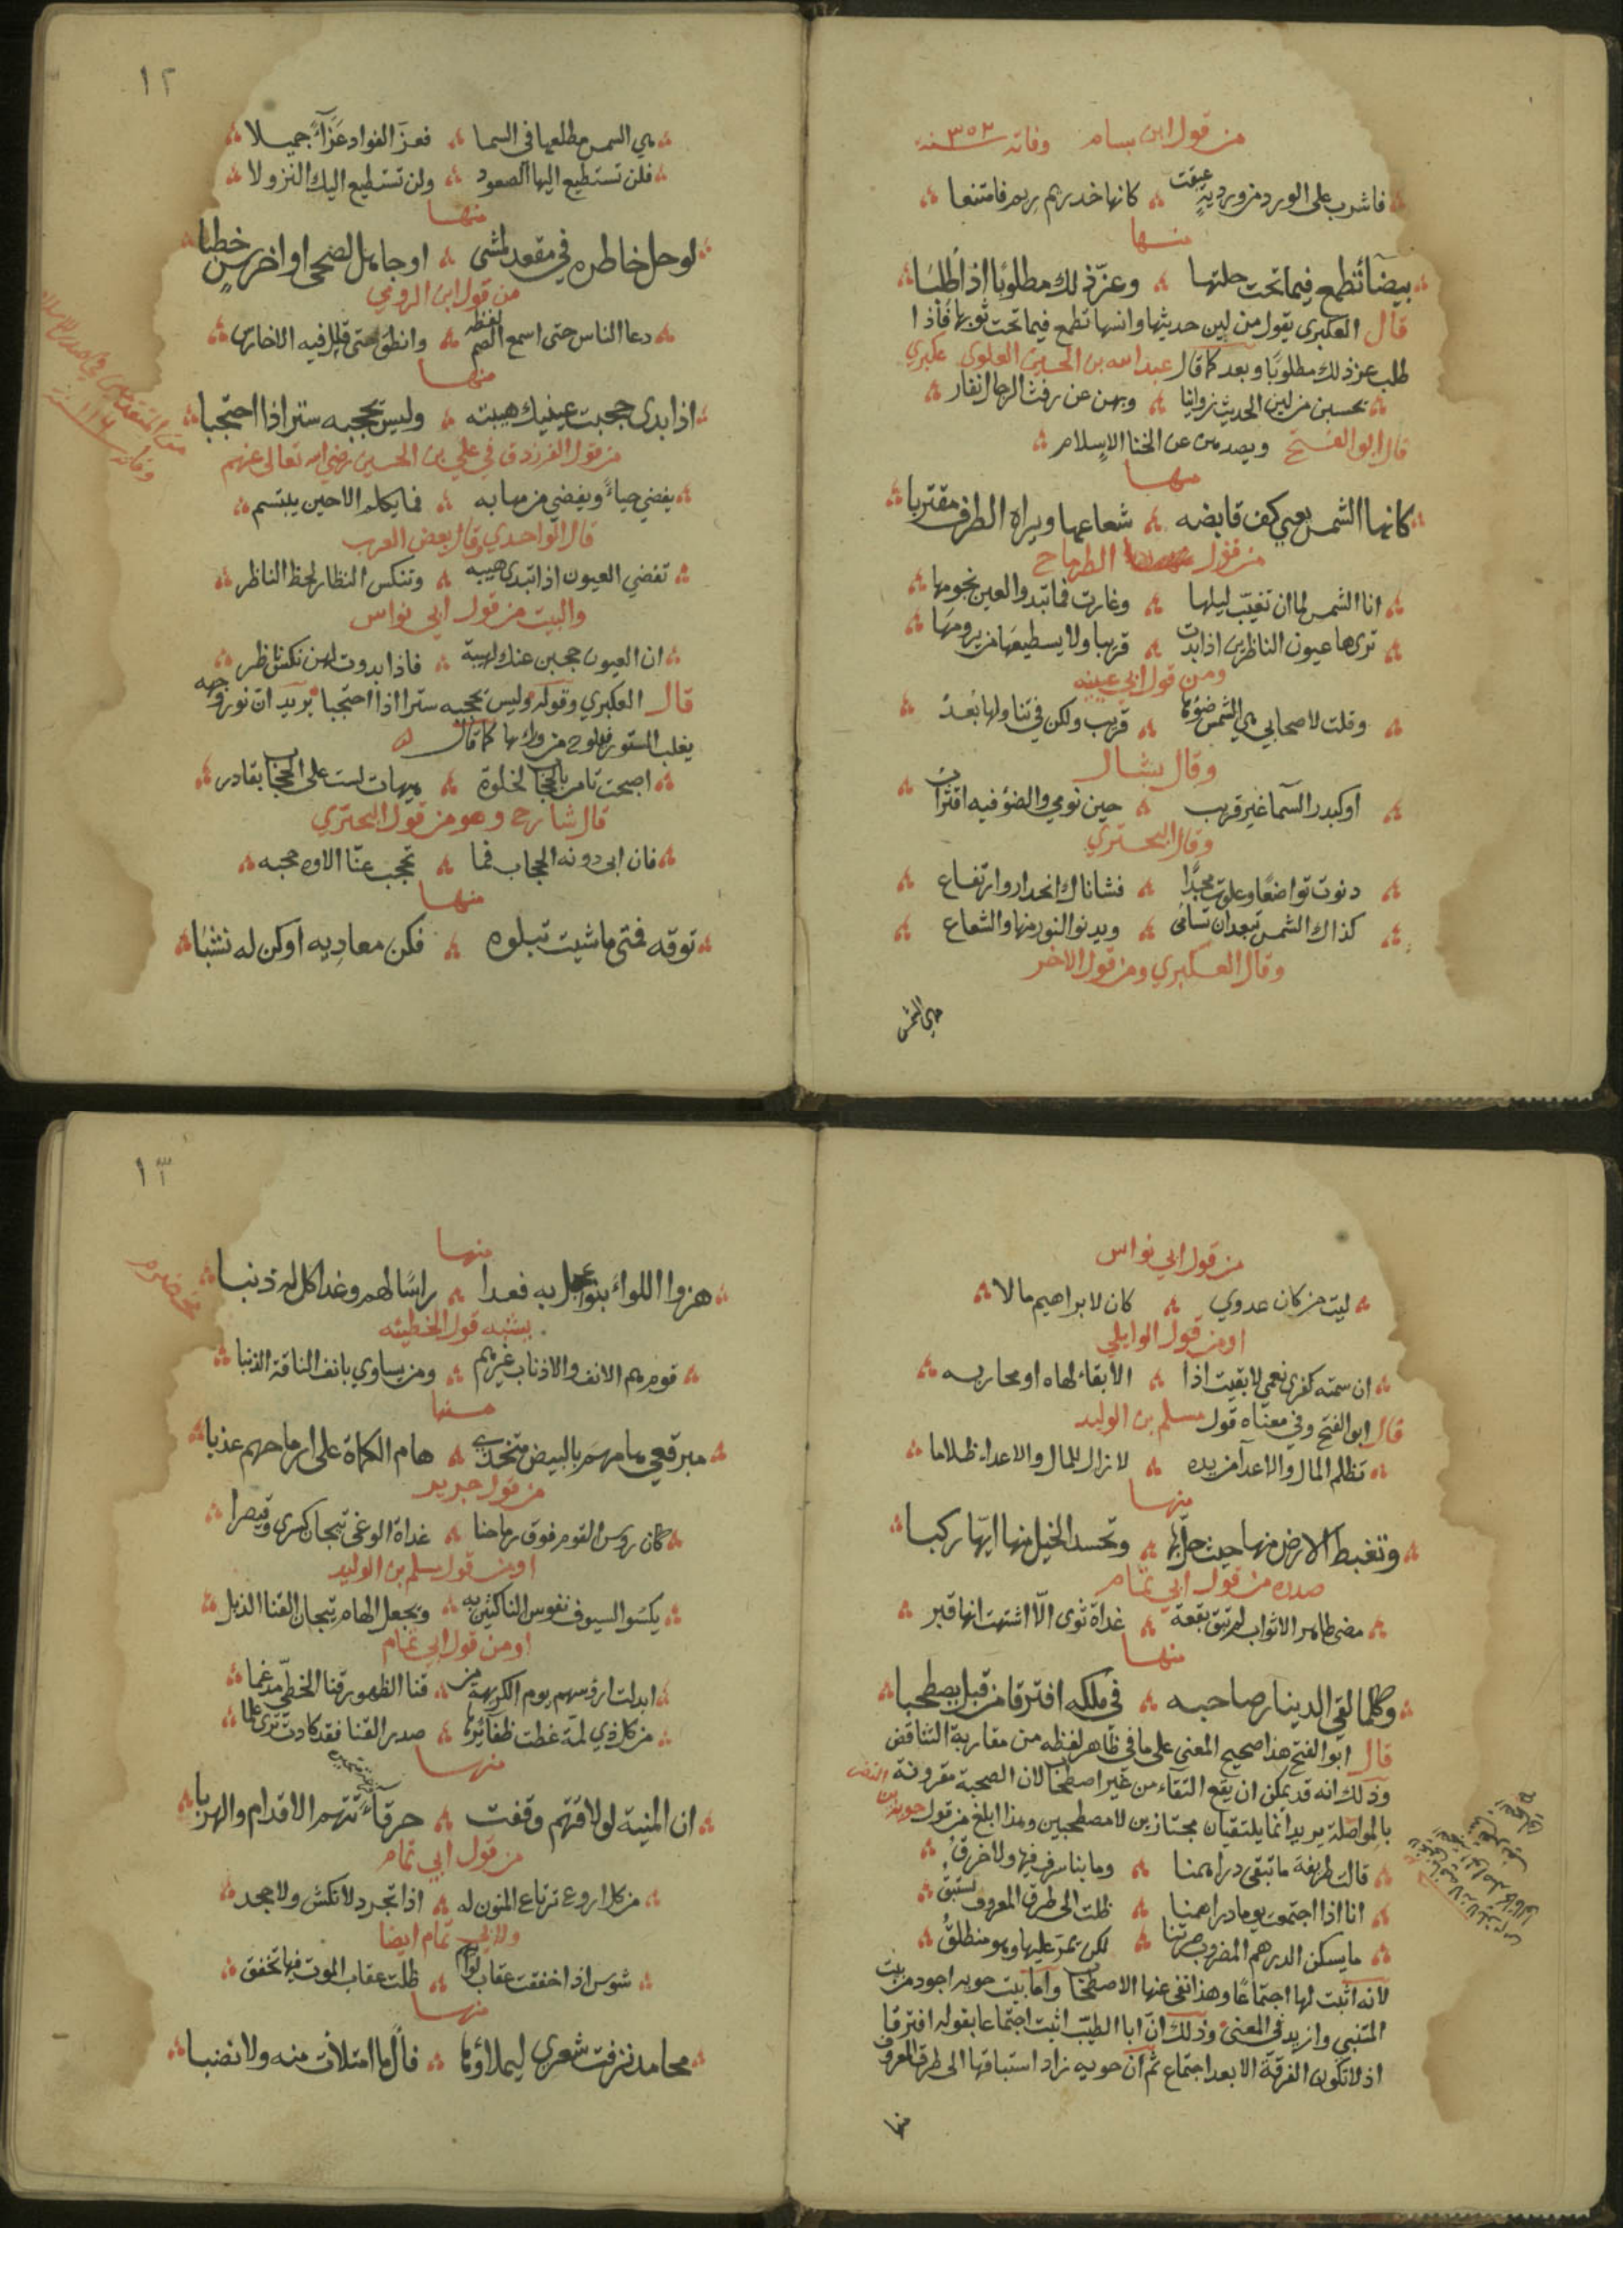 من قول ابن بسام وفاته سنة ٣٥٢
فاشرب على الورد من وردية عبقت كانها خد ريم ريم فامتنعا
منها
بيضآ تطمع فيما تحت حلتها وعزّ ذلك مطلوبًا اذا طلبَا
قال العكبري يقول من لين حديثها وانسها تطمع فيما تحت ثوبها فاذا
طلب عز ذلك مطلوبًا وبعد كما قال عبد الله بن الحسين العلوي عكبري
يحسبن من لين الحديث زوانيا وبهن عن رفث الرجال نفار
قال ابو الفتح ويصدهن عن الخنا الإسلام
منها
كانها الشمس يعيي كف قابضه شعاعها ويراه الطرف مقتربا
من قول الطرماح
انا الشمس لما ان تغيّب ليلها وغارت فما تبدو العين نجومها
تراها عيون الناظرين اذا بدت قريبا ولا يسطيعها من يرومها
ومن قول ابي عيينه
وقلت لاصحابي هي الشمس ضوؤها قريب ولكن في تناولها بُعدُ
وقال بشار
او كبدر السمآ غير قريب حين نومي والضؤ فيه اقتراب
وقال البحتري
دنوت تواضعًا وعلوت مجدًا فشاناك انحدار وارتفاع
كذاك الشمس تبعد ان تسامى ويدنو النور منها والشعاع
وقال العكبري ومن قول الاخر
هي الشمس
١٢
هي الشمس مطلعها في السما فعزّ الفواد عَزَآءً جميلا
فلن تستطيع اليها الصعود ولن تستطيع اليك النزولا
منها
لو حل خاطره في مقعد لمشى او جاهل لصحى او اخرس خطبا
من قول ابن الرومي
دعا الناس حتى اسمع الصم لفظه وانطق حتى قال فيه الاخارس
منها
اذا بدى حجبت عينيك هيبته وليس يحجبه ستر اذا احتجبا
من قول الفرزدق في علي بن الحسين رضي الله تعالى عنهم
يغضي حياءً ويغضي من مهابه فما يكلم الا حين يبتسم
قال الواحدي وقال بعض العرب
تغضي العيون اذا تبدى هيبه وتنكس النظار لحظ الناظر
والبيت من قول ابي نواس
ان العيون حجبن عنك لهيبة فاذا بدوت لهن نكس ناظر
قال العكبري وقوله وليس يحجبه سترا اذا احتجبا يريد ان نور وجهه
يغلب الستور فيلوح من ورائها كما قال
اصبحت تامر بالحجاب لخلوة هيهات لست على الحجاب بقادر
قال شارح وهو من قول البحتري
فان ابى دونه الحجاب فما تحجب عنّا الاوه حجبه
منها
توقه فمتى ما شيت تبلوه فكن معاديه او كن له نشبَا
من قول ابي نواس
ليت من كان عدوي كان لابراهيم مالا
او من قول الوايلي
ان سمته كفرى نعمي لا بقيت اذا الا بقاء لهاه او محاربه
قال ابو الفتح وفي معناه قول مسلم بن الوليد
تظلم المال والاعدآ من يده لا زال للمال والاعداء ظلاما
منها
وتغبط الارض منها حيث حل بها وتحسد الخيل منها ايّها ركبا
صدره من قول ابي تمام
مضى طاهر الاثواب لم تبق بقعة غداة ثوى الّا اشتهت انها قبر
منها
وكلما لقي الدينار صاحبه في ملكه افترقا من قبل يصطحبا
قال ابو الفتح هذا صحيح المعنى على ما في ظاهر لفظه من مقاربة التناقض
وذلك انه قد يمكن ان يقع التقاء من غير اصطحاب لان الصحبة مقرونة
بالمواصلة يريد انما يلتقيان مجتازين لا مصطحبين وهذا ابلغ من قول جوية بن النضر
قالت طريفة ما تبقى دراهمنا وما بنا سرف فيها ولا خرقُ
انا اذا اجتمعت يوما دراهمنا ظلت الى طرق المعروف تستبقُ
ما يسكن الدرهم المضروب صرتنا لكن يمرّ عليها وهو منطلقُ
لانه اثبت لها اجتماعًا وهذا نفى عنها الاصطحاب واما بيت جويه اجود من بيت
المتنبي وازيد في المعنى وذلك انّ ابا الطيّب اثبت اجتماعا بقوله افترقا
اذ لا تكون الفرقة الا بعد اجتماع ثم ان جويه زاد استباقها الى طرق المعروف
منها
١٣
منها
هزوا اللواء بنوا عجل به فغدا راسًا لهم وغدا كل له ذنبا
يشبه قول الحطيئه
قوم هم الانف والاذناب غيرهم ومن يساوي بانف الناقة الذنبا
منها
مبرقعي هامهم بالبيض متخذي هام الكماة على ارماحهم عذبا
من قول جرير
كان روس القوم فوق رماحنا غداة الوغى تيجان كسرى وقيصرا
او من قول مسلم بن الوليد
يكسُو السيوف نفوس الناكثين به ويجعل الهام تيجان القنا الذبل
او من قول ابي تمام
ابدلت ارؤسهم يوم الكريهة من قنا الظهور قنا الخطّي مدغما
من كل ذي لمّة غطت ظفائرها صدر القنا فقد كادت ترى علما
منها
ان المنية لو لاقتهم وقفت حرقآءَ تتهم الاقدام والهربا
من قول ابي تمام
من كل اروع ترتاع المنون له اذا تجرد لا نكس ولا جحد
ولابي تمام ايضا
شوس اذا خفقت عقاب لواهم ظلت عقاب الموت فيها تخفق
منها
محامد نزفت شعري ليملاؤها فآل ما امتلأت منه ولا نضبا